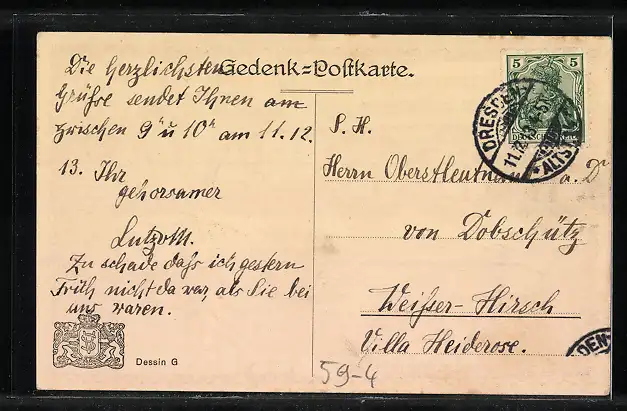 Gedenk-Postkarte.
Die herzlichsten
Grüße sendet Ihnen am
zwischen 9 u 10 am 11.12.
13. Ihr
gehorsamer
Zu schade daß ich gestern
Früh nicht da war, als Sie bei
uns waren.
Dessin G
5 5
DRESDEN-
ALTST.
S. H.
Herrn Oberstleutnant a. D
von Dobschütz
Weißer-Hirsch
Villa Heiderose.
59-4